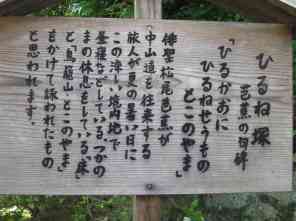 ひるね塚
芭蕉の句碑
「ひるがおに
ひるねせうもの
とこのやま」
俳聖松尾芭蕉が
中山道を往来する
旅人が夏の暑い日に
この涼しい境内地で
昼寝などしている、つかの
まの休息をしている「床」
と「鳥籠山・とこのやま」
をかけて詠われたもの
と思われます。